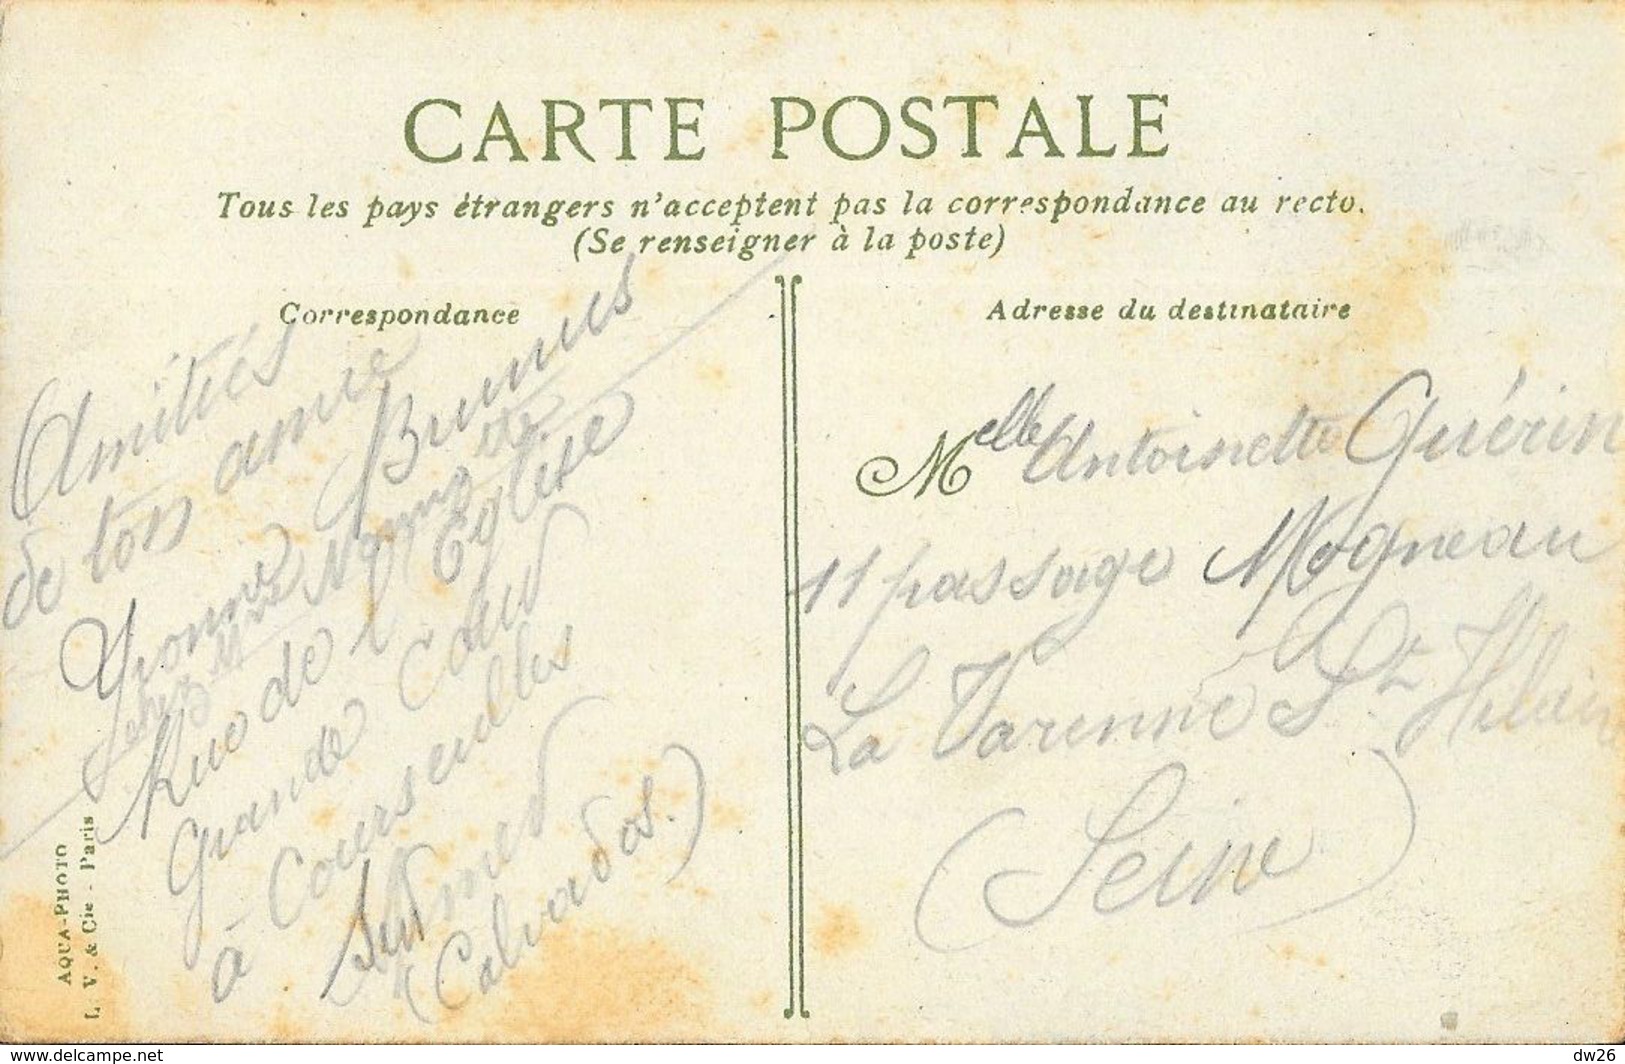 CARTE POSTALE
Tous les pays étrangers n'acceptent pas la correspondance au recto.
(Se renseigner à la poste)
Correspondance
Amitiés
de ton amie
Yvonne Brunus
chez Mme
Rue de l'Eglise
Grande
à Courseulles
sur mer
(Calvados.)
AQUA-PHOTO
L. V. & Cie - Paris
Adresse du destinataire
Melle Antoinette Guérin
11 passage Mogneau
La Varenne St Hilaire
(Seine)
www.delcampe.net
dw26